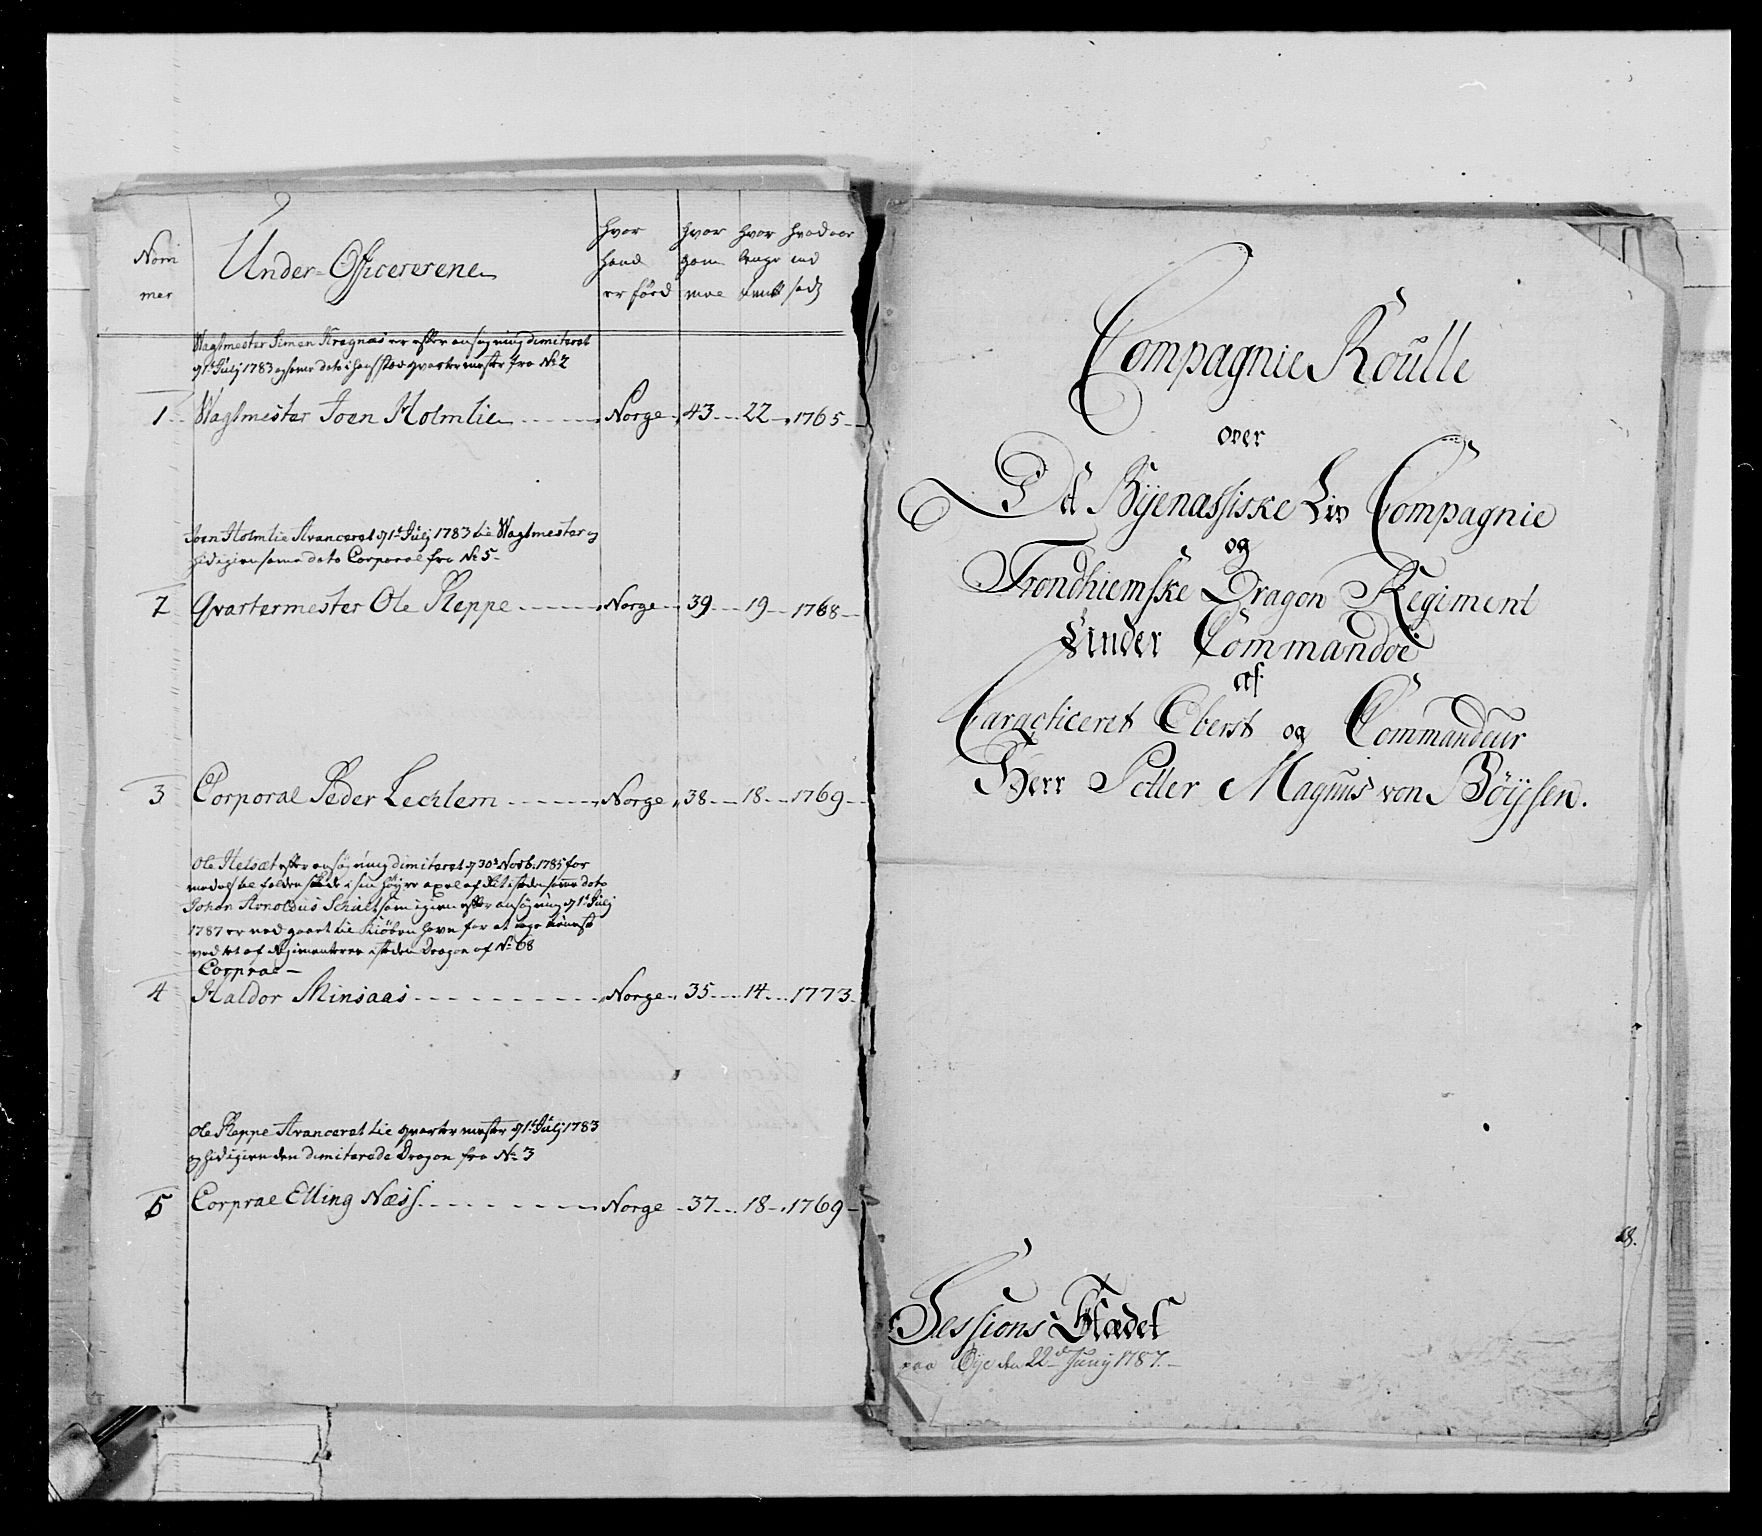 Nom
mer
Under-Officererene
hvor
hand
er förd
hvor
gam
mel
hvor
lenge
tient
hvad aar
ind
sadt
Wagtmester Simen Kregnæs er efter ansøgning dimiteret
d 1t Julj 1783 og same dato i hans sted qvartermester fra No 2
1 Wagtmester Joen Holmlie Norge 43 22 1765
Joen Holmlie Avanceret d 1t Julj 1783 til Wagtmester og
hid igien same dato Corporal fra No 5
2 Qvartermester Ole Reppe Norge 39 19 1768
3 Corporal Peder Lechlem Norge 38 18 1769
Ole Helsæt efter ansøgning dimiteret d 30t Novb: 1785 for
medelst skade i sin høyre axel af Rit i steden same dato
Johan Arnoldus Schult som igien efter ansøgning d 1t Julj
1787 er ned gaaet til Kiøbenhavn for at tage tieneste
ved et af Regimenterer i steden Dragon af No 68
Corpral
4 Haldor Minsaas Norge 35 14 1773
Ole Reppe Avanceret til qvartermester d 1t Julj 1783
og hid igien den dimiterede Dragon fra No 3
5 Corpral Elling Næss Norge 37 18 1769
Compagnie Roulle
over
Det Byenæssiske Liv Compagnie
og
Trondhiemske Dragon Regiment
Under Commandoe
af
Caracticeret Oberst og Commandeur
Herr Peter Magnus von Böysen.
8.
Sessions Stædet
paa Øye den 22d Junij 1787.